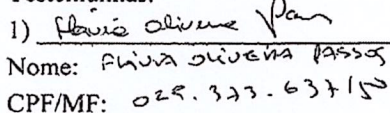 1) Flávia Oliveira Pas
Nome: FLÁVIA OLIVEIRA PASSOS
CPF/MF: 029.373.637/50